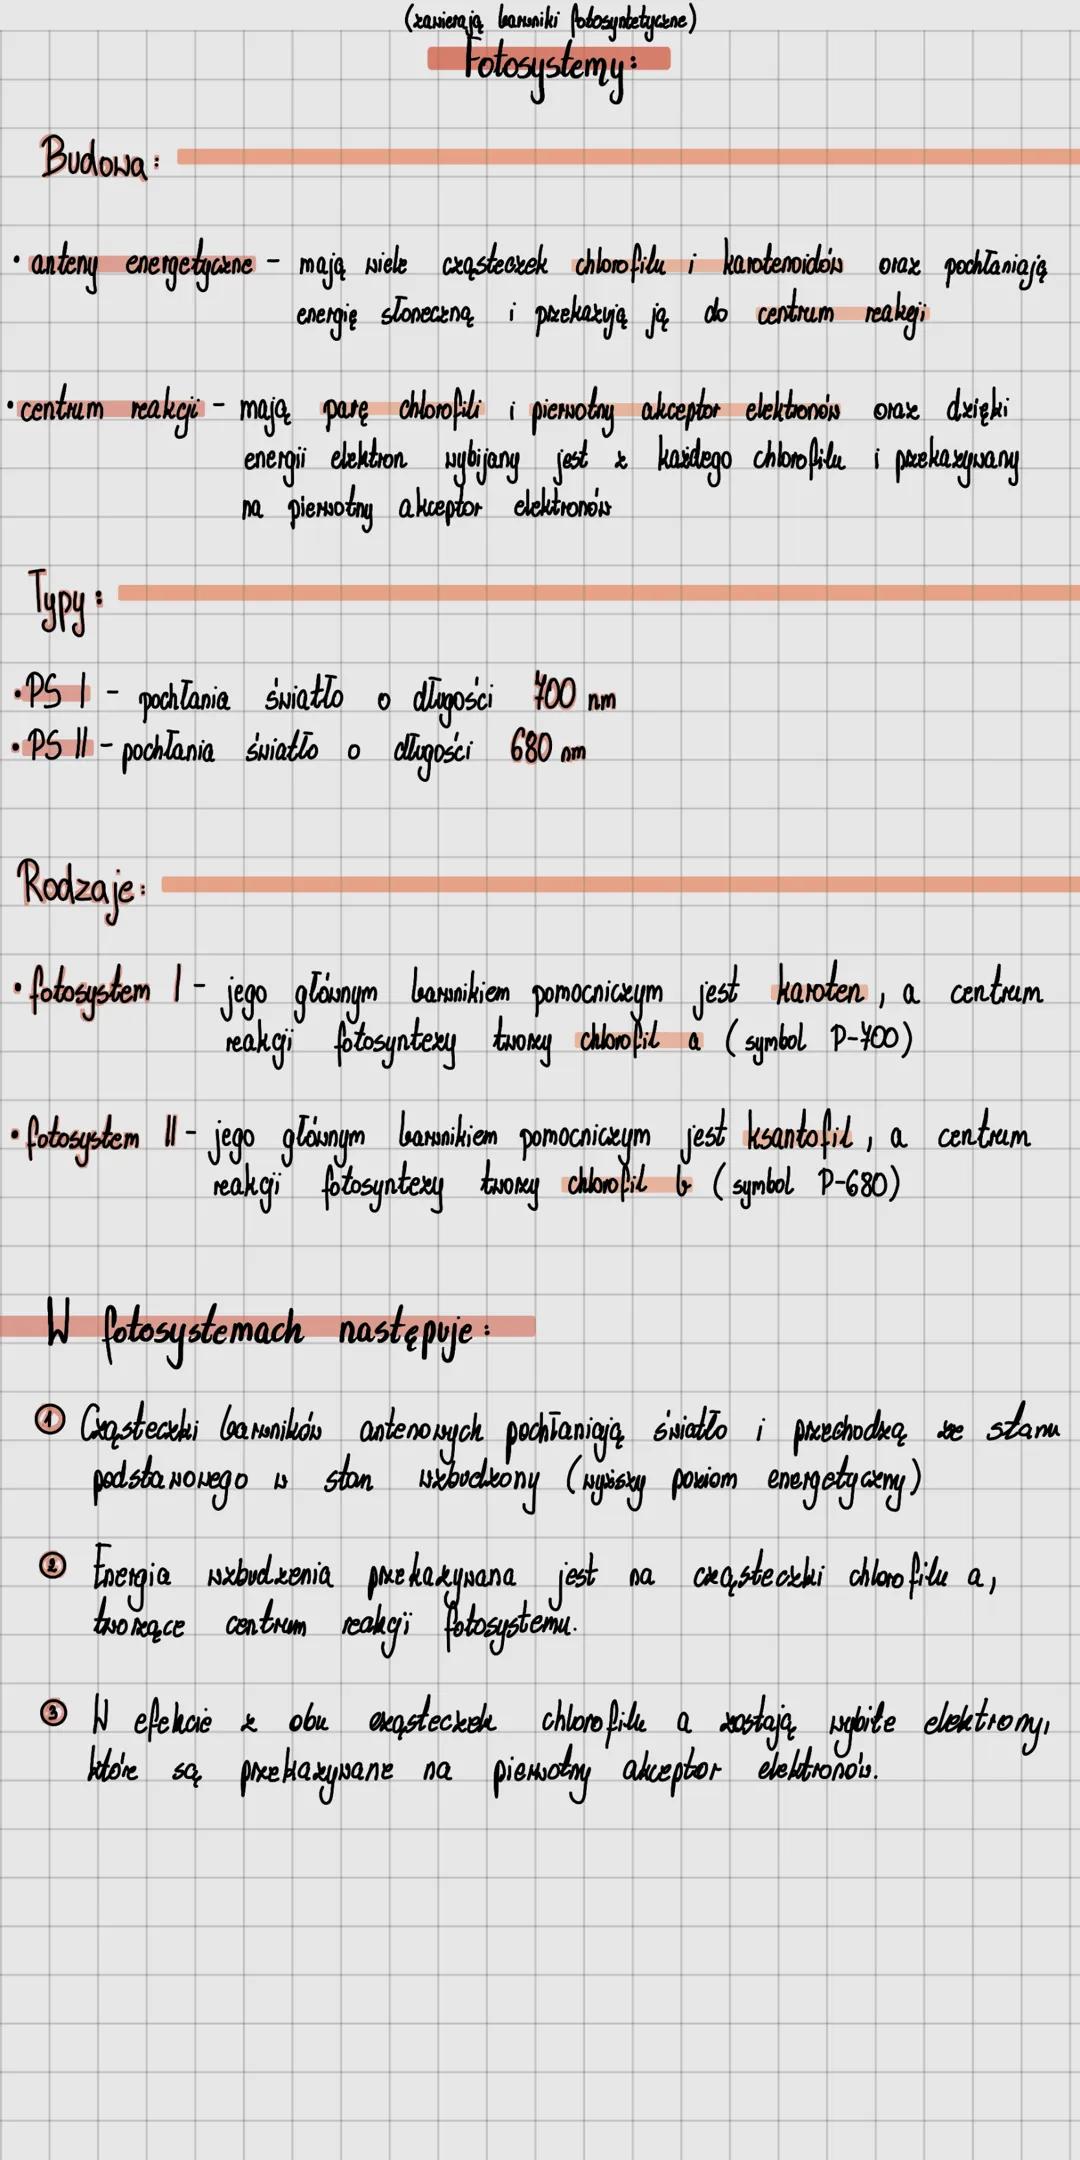 (zawierają barwniki fotosyntetyczne)
Fotosystemy:
Budowa:
• anteny energetyczne - mają wiele cząsteczek chlorofilu i karotenoidów oraz pochłaniają
energię słoneczną i przekazują ją do centrum reakcji
• centrum reakcji - mają parę chlorofili i pierwotny akceptor elektronów oraz dzięki
energii elektron wybijany jest z każdego chlorofilu i przekazywany
na pierwotny akceptor elektronów
Typy:
• PS I - pochłania światło o długości 700 nm
• PS II - pochłania światło o długości 680 nm
Rodzaje:
• fotosystem I - jego głównym barwnikiem pomocniczym jest karoten, a centrum
reakcji fotosyntezy tworzy chlorofil a (symbol P-700)
• fotosystem II - jego głównym barwnikiem pomocniczym jest ksantofil, a centrum
reakcji fotosyntezy tworzy chlorofil b (symbol P-680)
W fotosystemach następuje:
1 Cząsteczki barwników antenowych pochłaniają światło i przechodzą ze stanu
podstawowego w stan wzbudzony (wyższy poziom energetyczny)
2 Energia wzbudzenia przekazywana jest na cząsteczki chlorofilu a,
tworzące centrum reakcji fotosystemu.
3 W efekcie z obu cząsteczek chlorofilu a zostają wybite elektrony,
które są przekazywane na pierwotny akceptor elektronów.